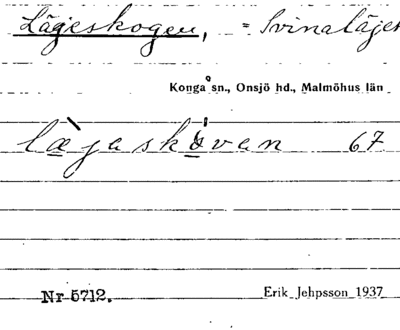 Lägeskogen, = Svinaläjes
Konga sn., Onsjö hd., Malmöhus län
læ̀jaskóvan 67
Nr 5712. Erik Jehpsson 1937